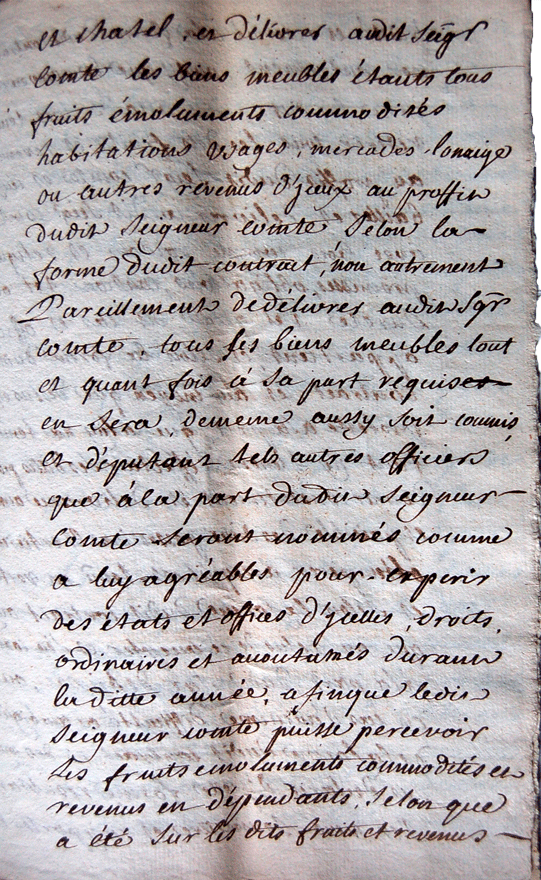 et chatel, et délivrer audit Seigr
Comte les biens meubles étants tous
fruits émoluments commodités
habitations usages, mercades
ou autres revenus d'yceux au proffit
dudit Seigneur Comte Selon la
forme dudit contrat, non autrement
Pareillement de délivrer audit Sgr
Comte, tous ses biens meubles tout
et quant fois à Sa part requise
en Sera, de meme aussy Soit commis
et députant tels autres officiers
que à la part dudit Seigneur
Comte Seront nominés comme
a luy agréables pour
des états et offices d'ycelles, droits,
ordinaires et acoutumés durant
la ditte année, afinque ledit
Seigneur Comte puisse percevoir
les fruits emoluments commodités et
revenus en dépendants, Selon que
a été Sur les dits fruits et revenus